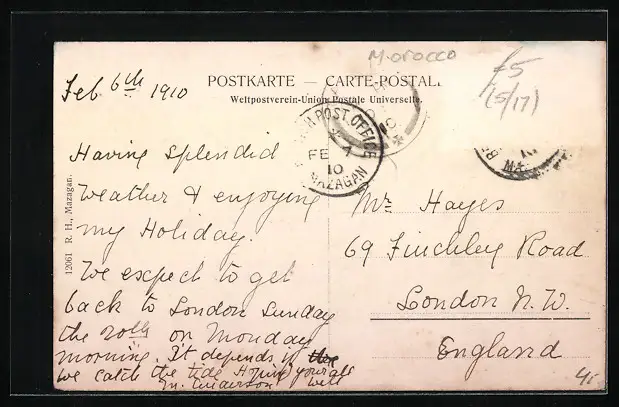 Morocco
£5
(5/17)
POSTKARTE — CARTE-POSTALE
Weltpostverein-Union Postale Universelle.
Feb 6th 1910
POST OFFICE
FE 7
10
MAZAGAN
Having splendid
weather & enjoying
my Holiday.
We expect to get
back to London Sunday
the 20th on Monday
morning. It depends if
we catch the tide Hoping your all
well
Mr Hayes
69 Finchley Road
London N.W.
England
12061 R. H., Mazagan.